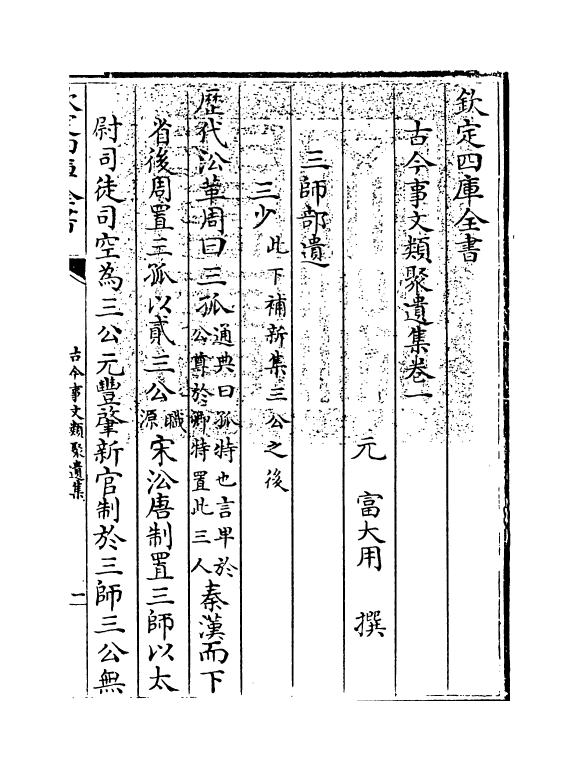 欽定四庫全書
古今事文類聚遺集卷一
元 富大用 撰
三師部遺
三少此下補新集三公之後
歷代沿革周曰三孤通典曰孤特也言卑於公尊於卿特置此三人秦漢而下
省後周置三孤以貳三公職源宋沿唐制置三師以太
尉司徒司空為三公元豐肇新官制於三師三公無
古今事文類聚遺集